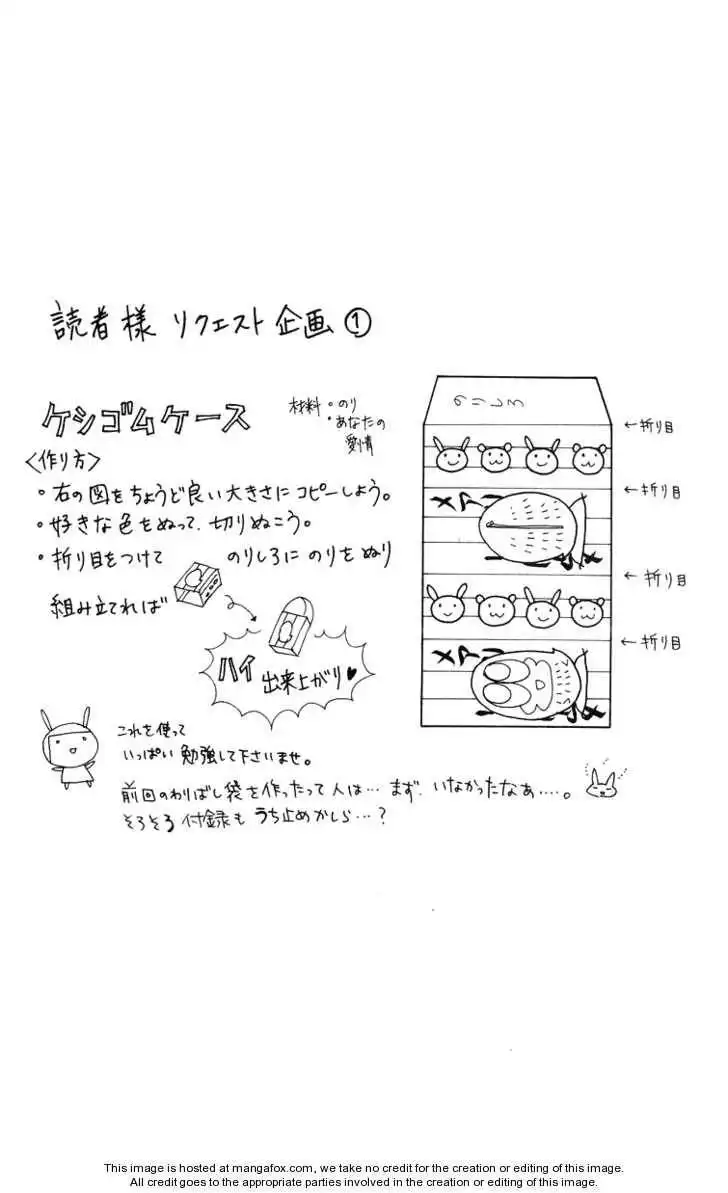 読者様 リクエスト企画①
ケシゴムケース
材料・のり
・あなたの
愛情
〈作り方〉
・右の図をちょうど良い大きさにコピーしよう。
・好きな色をぬって、切りぬこう。
・折り目をつけて のりしろに のりをぬり
組み立てれば
ハイ 出来上がり♥
のりしろ
←折り目
←折り目
←折り目
←折り目
これを使って
いっぱい勉強して下さいませ。
前回のわりばし袋を作ったって人は…まず、いなかったなぁ….。
そろそろ付録も うち止めかしら…?
This image is hosted at mangafox.com, we take no credit for the creation or editing of this image.
All credit goes to the appropriate parties involved in the creation or editing of this image.